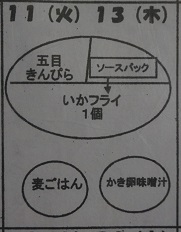 11（火）13（木）
五目
きんぴら
ソースパック
いかフライ
1個
麦ごはん
かき卵味噌汁